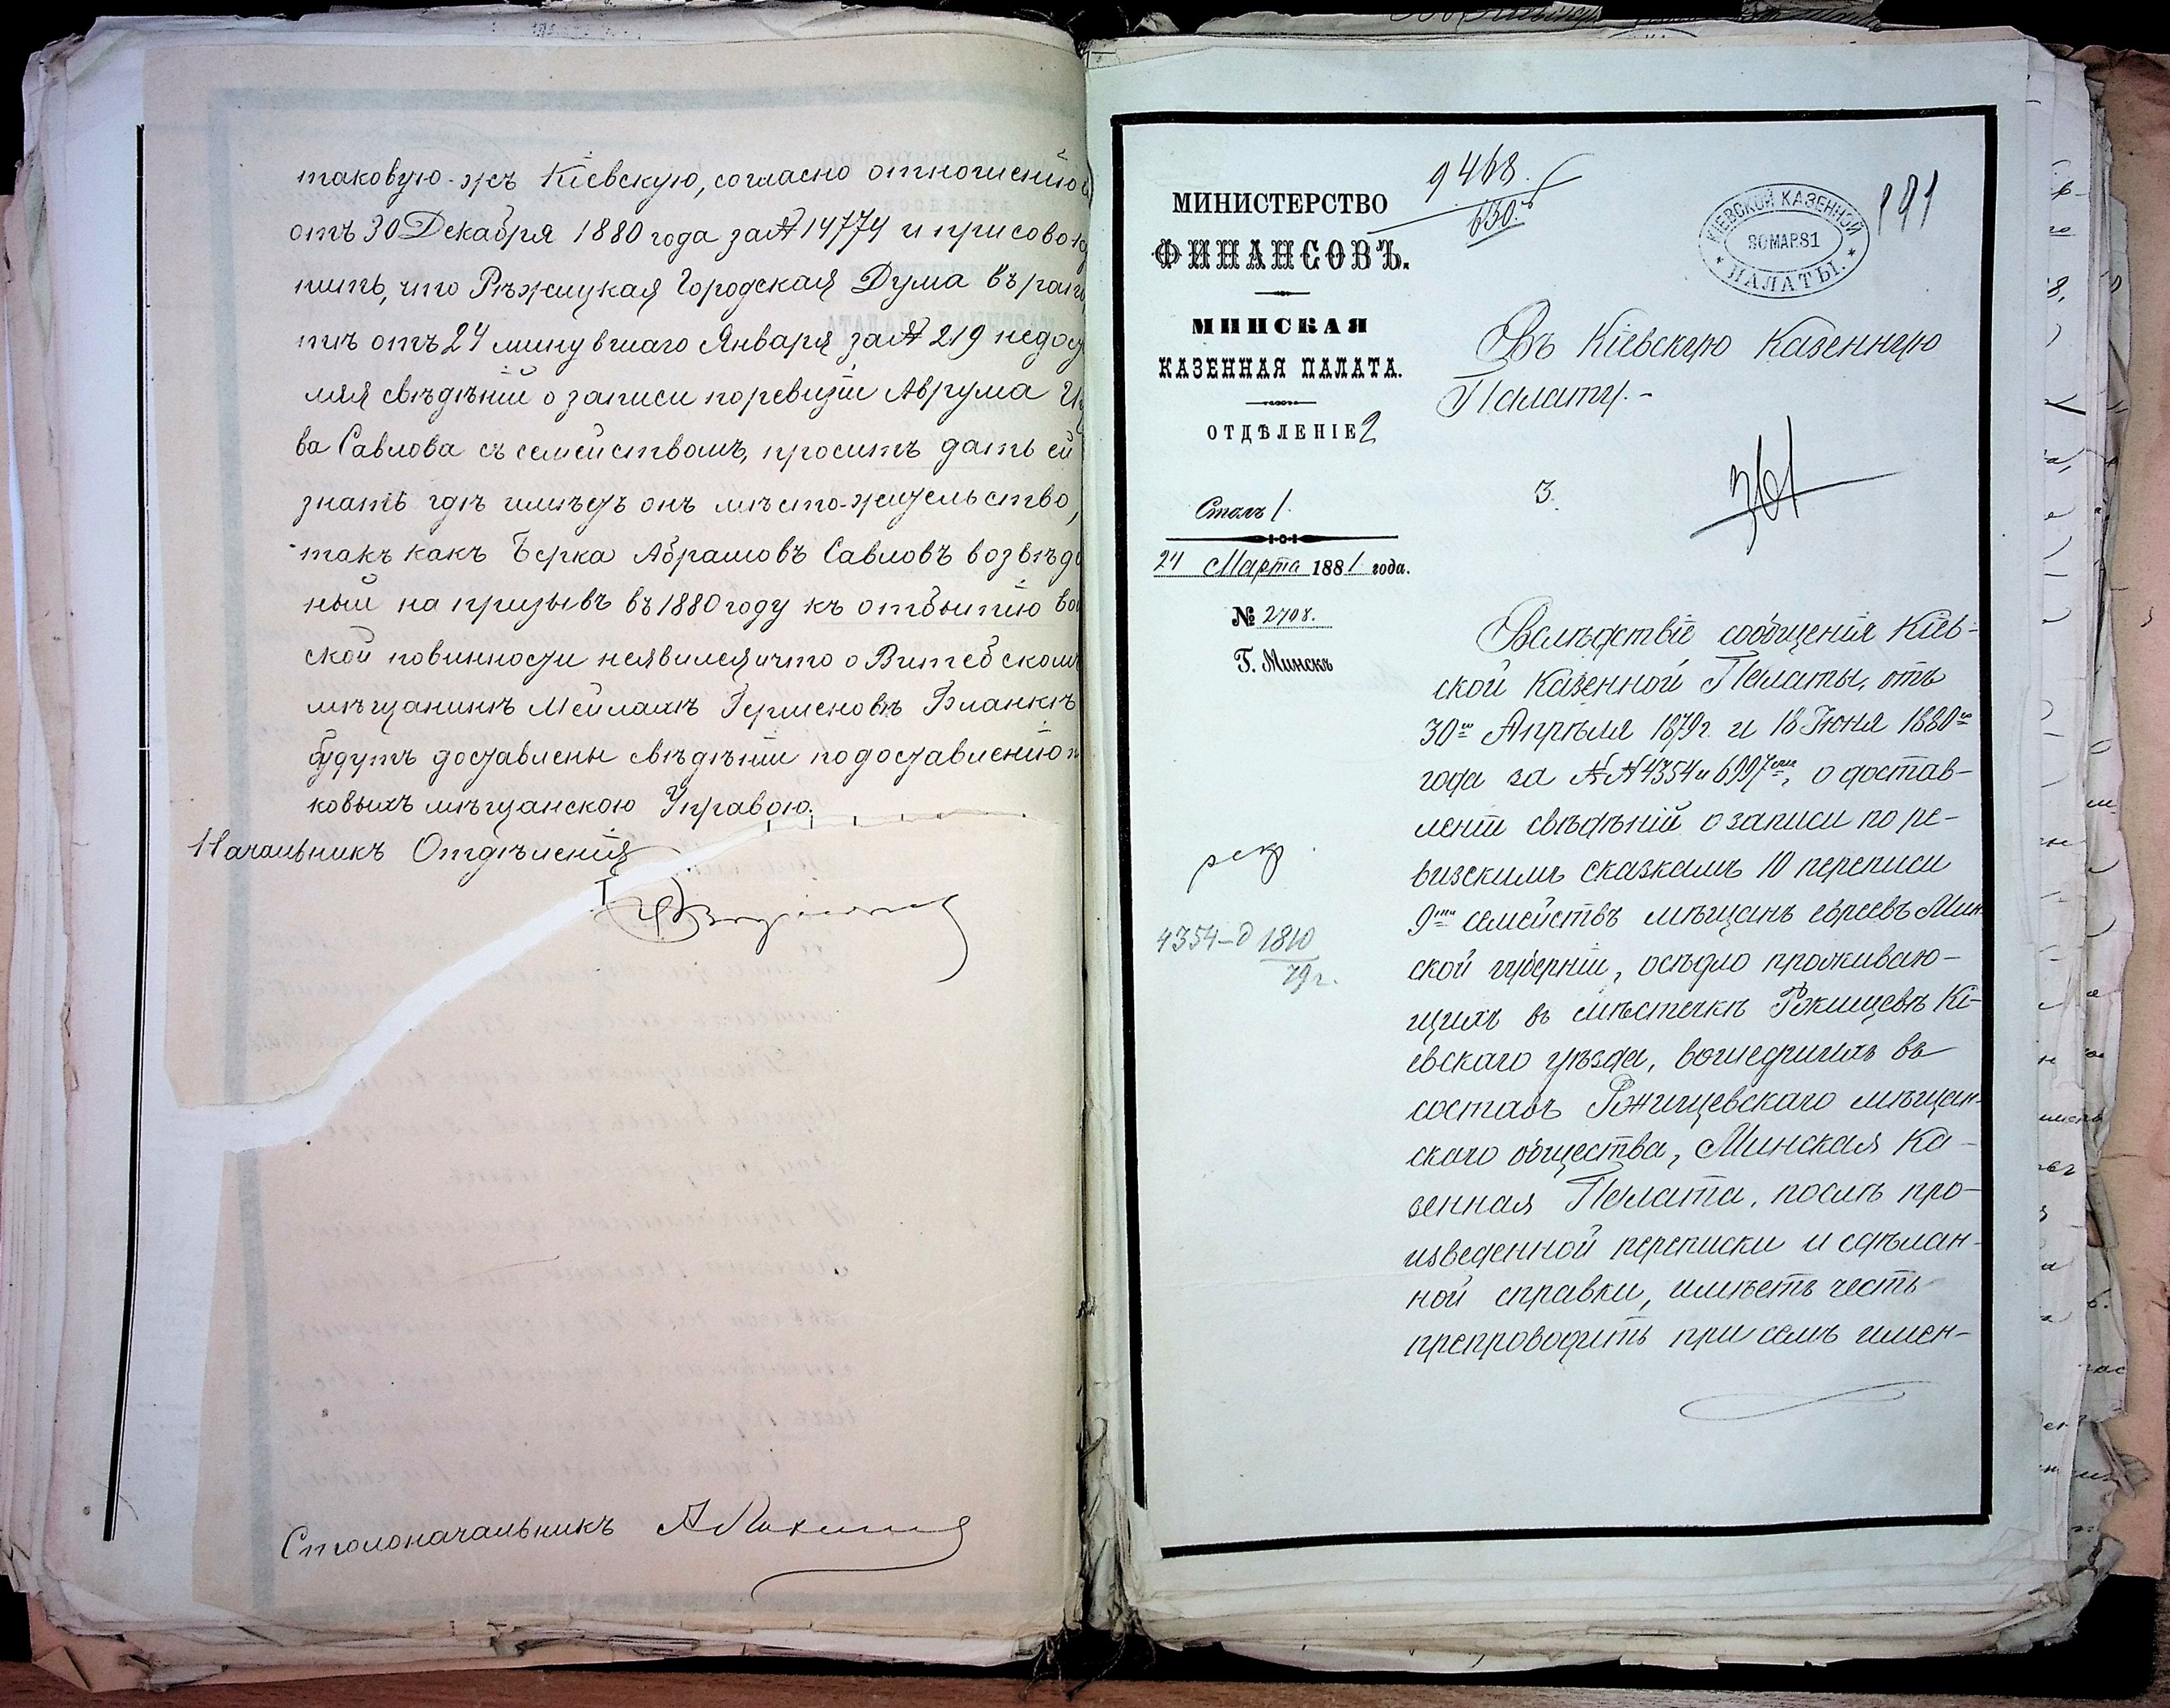 таковую-жъ Кіевскую, согласно отношенію
отъ 30 Декабря 1880 года за № 14774 и присовоку
пить, что Рѣжицкая Городская Дума въ рапор
тѣ отъ 24 минувшаго Января за № 219 недост
ляя свѣдѣній о записи по ревизіи Аврума
ва Савлова съ семействомъ, проситъ дать ей
знать гдѣ имѣетъ онъ мѣсто-жительство,
такъ какъ Берка Абрамовъ Савловъ
ный на призывъ въ 1880 году къ отбытію во
ской повинности неявился и что о Витебскомъ
мѣщанинѣ Мейлахѣ Бланкѣ
будутъ доставлены свѣдѣнія по доставленію
ковыхъ мѣщанскою Управою.
Начальникъ Отдѣленія
Столоначальникъ
МИНИСТЕРСТВО
ФИНАНСОВЪ.
МИНСКАЯ
КАЗЕННАЯ ПАЛАТА.
ОТДѢЛЕНІЕ 2
Столъ 1.
24 Марта 1881 года.
№ 2798.
Г. Минскъ
4354-д 1810
79 г.
9468.
630.
КІЕВСКОЙ КАЗЕННОЙ
30 МАР 81
ПАЛАТЫ.
191
Въ Кіевскую Казенную
Палату.-
3.
361
Вслѣдствіе сообщенія Кіев-
ской Казенной Палаты, отъ
30го Апрѣля 1879 г. и 18 Іюня 1880го
года за №№ 4354 и 6997, о достав-
леніи свѣдѣній о записи по ре-
визскимъ сказкамъ 10 переписи
9ти семействъ мѣщанъ евреевъ Мин-
ской губерніи, осѣдло проживаю-
щихъ въ мѣстечкѣ Ржищевѣ Кі-
евскаго уѣзда, вошедшихъ въ
составъ Ржищевскаго мѣщан-
скаго общества, Минская Ка-
зенная Палата, послѣ про-
изведенной переписки и сдѣлан-
ной справки, имѣетъ честь
препроводить при семъ имен-